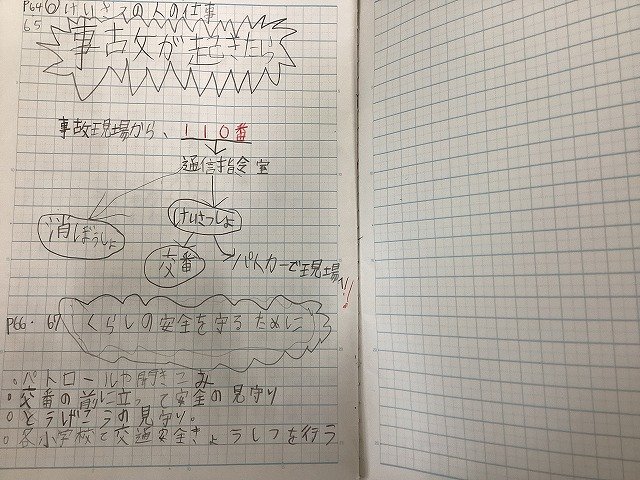 P64 ⑥けいさつの人の仕事
65
事故が起きたら
事故現場から、110番
通信指令室
消ぼうしょ
けいさつしょ
交番
パトカーで現場へ!!
P66・67 くらしの安全を守るために
・パトロールや聞きこみ
・交番の前に立って安全の見守り
○とうげこうの見守り。
○各小学校で交通安全きょうしつを行う